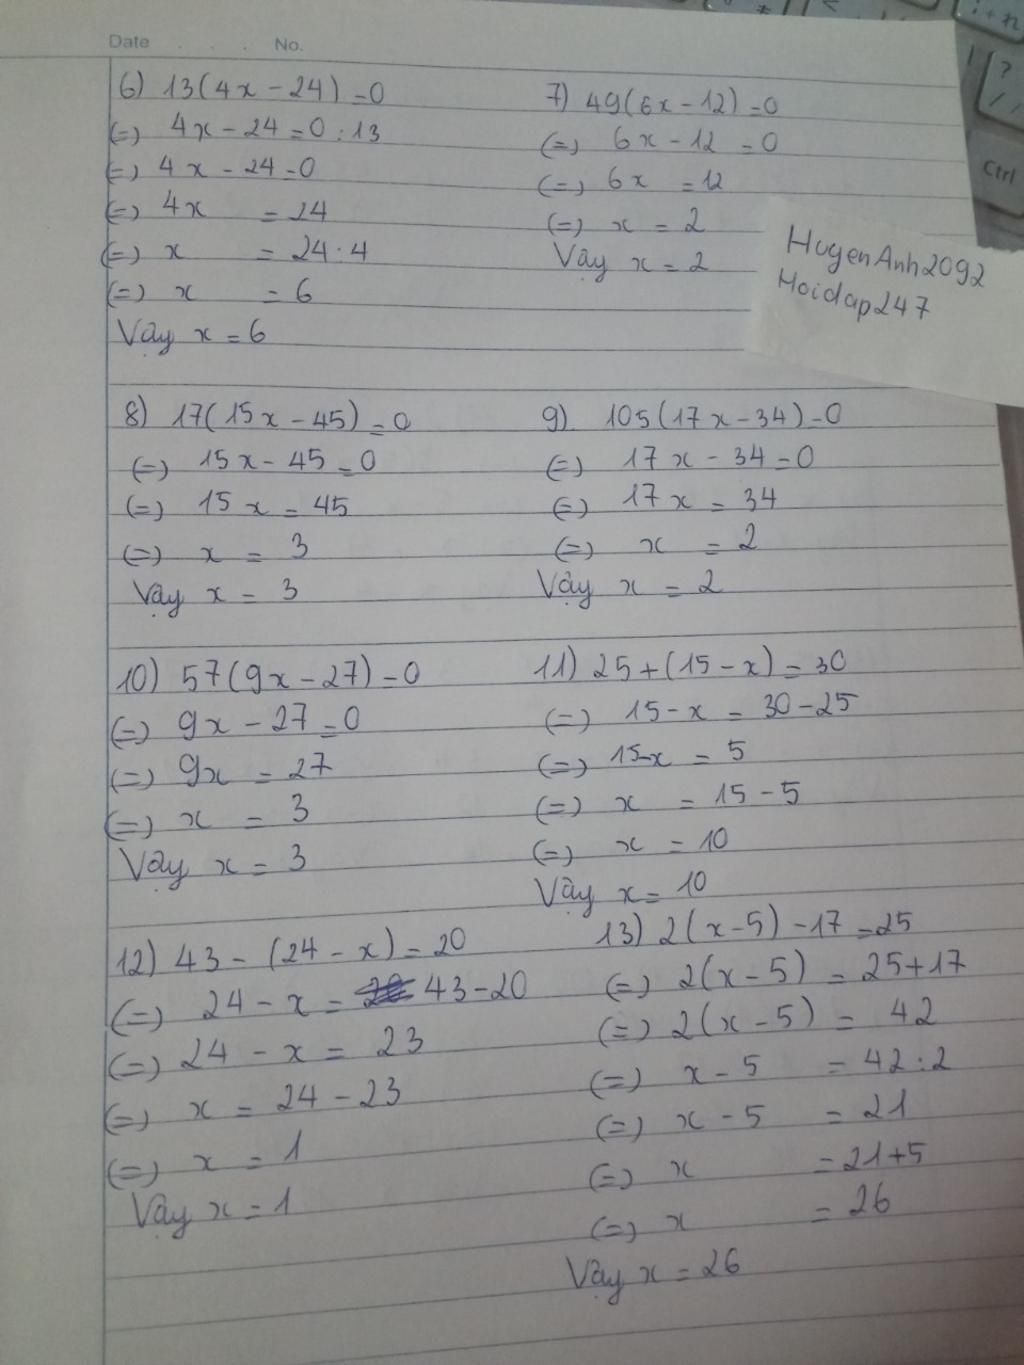 Date . . . No.
6) 13(4x - 24) = 0
(=) 4x - 24 = 0 : 13
(=) 4x - 24 = 0
(=) 4x = 24
(=) x = 24 : 4
(=) x = 6
Vậy x = 6
7) 49(6x - 12) = 0
(=) 6x - 12 = 0
(=) 6x = 12
(=) x = 2
Vậy x = 2
HuyenAnh2092
Hoidap247
8) 17(15x - 45) = 0
(=) 15x - 45 = 0
(=) 15x = 45
(=) x = 3
Vậy x = 3
9) 105(17x - 34) = 0
(=) 17x - 34 = 0
(=) 17x = 34
(=) x = 2
Vậy x = 2
10) 57(9x - 27) = 0
(=) 9x - 27 = 0
(=) 9x = 27
(=) x = 3
Vậy x = 3
11) 25 + (15 - x) = 30
(=) 15 - x = 30 - 25
(=) 15 - x = 5
(=) x = 15 - 5
(=) x = 10
Vậy x = 10
12) 43 - (24 - x) = 20
(=) 24 - x = 43 - 20
(=) 24 - x = 23
(=) x = 24 - 23
(=) x = 1
Vậy x = 1
13) 2(x - 5) - 17 = 25
(=) 2(x - 5) = 25 + 17
(=) 2(x - 5) = 42
(=) x - 5 = 42 : 2
(=) x - 5 = 21
(=) x = 21 + 5
(=) x = 26
Vậy x = 26
Ctrl